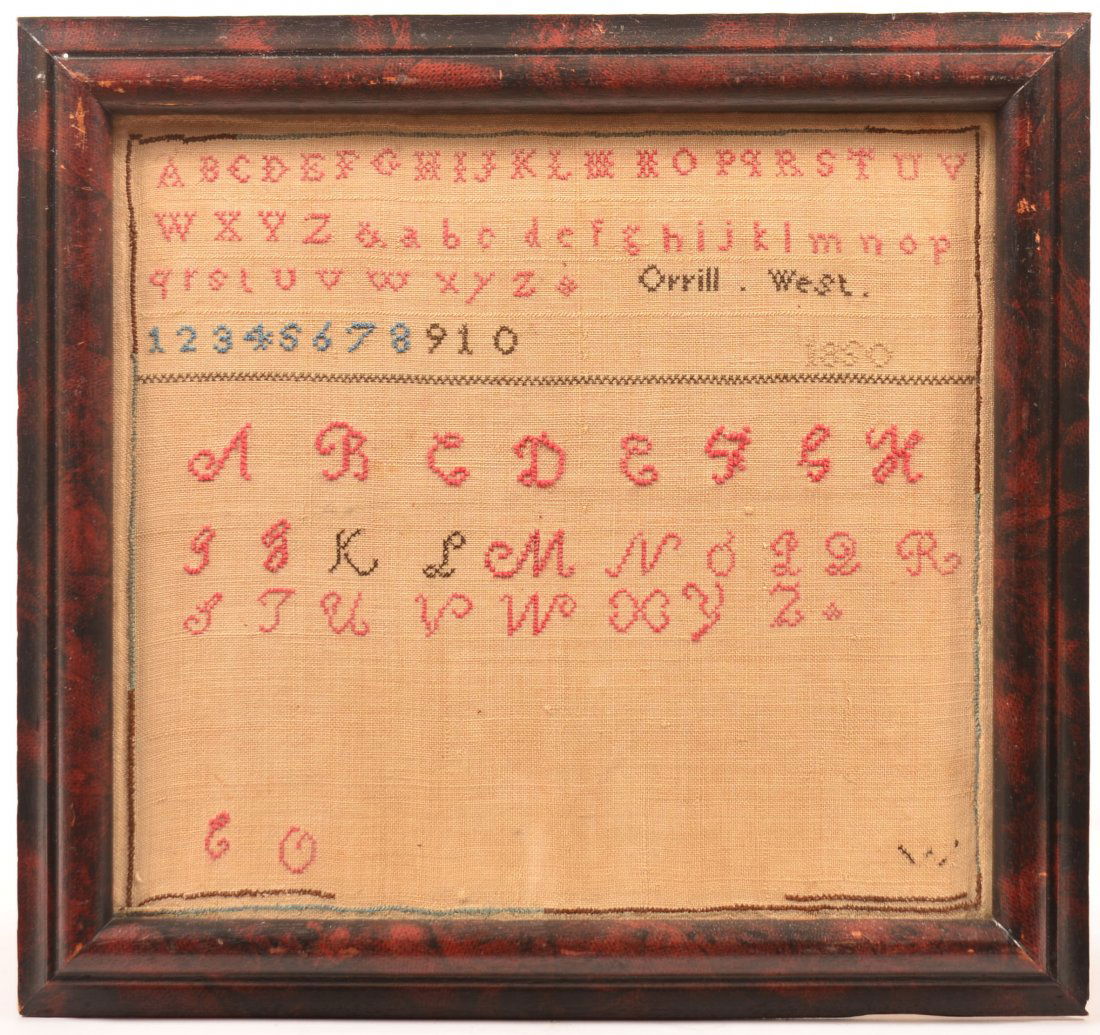 A B C D E F G H I J K L M N O P q R S T U V
W X Y Z & a b c d e f g h i j k l m n o p
q r s t u v w x y z & Orrill . West .
1 2 3 4 5 6 7 8 9 1 0
1830
A B C D E F G H
I J K L M N O P Q R
S T U V W X Y Z &
C O W